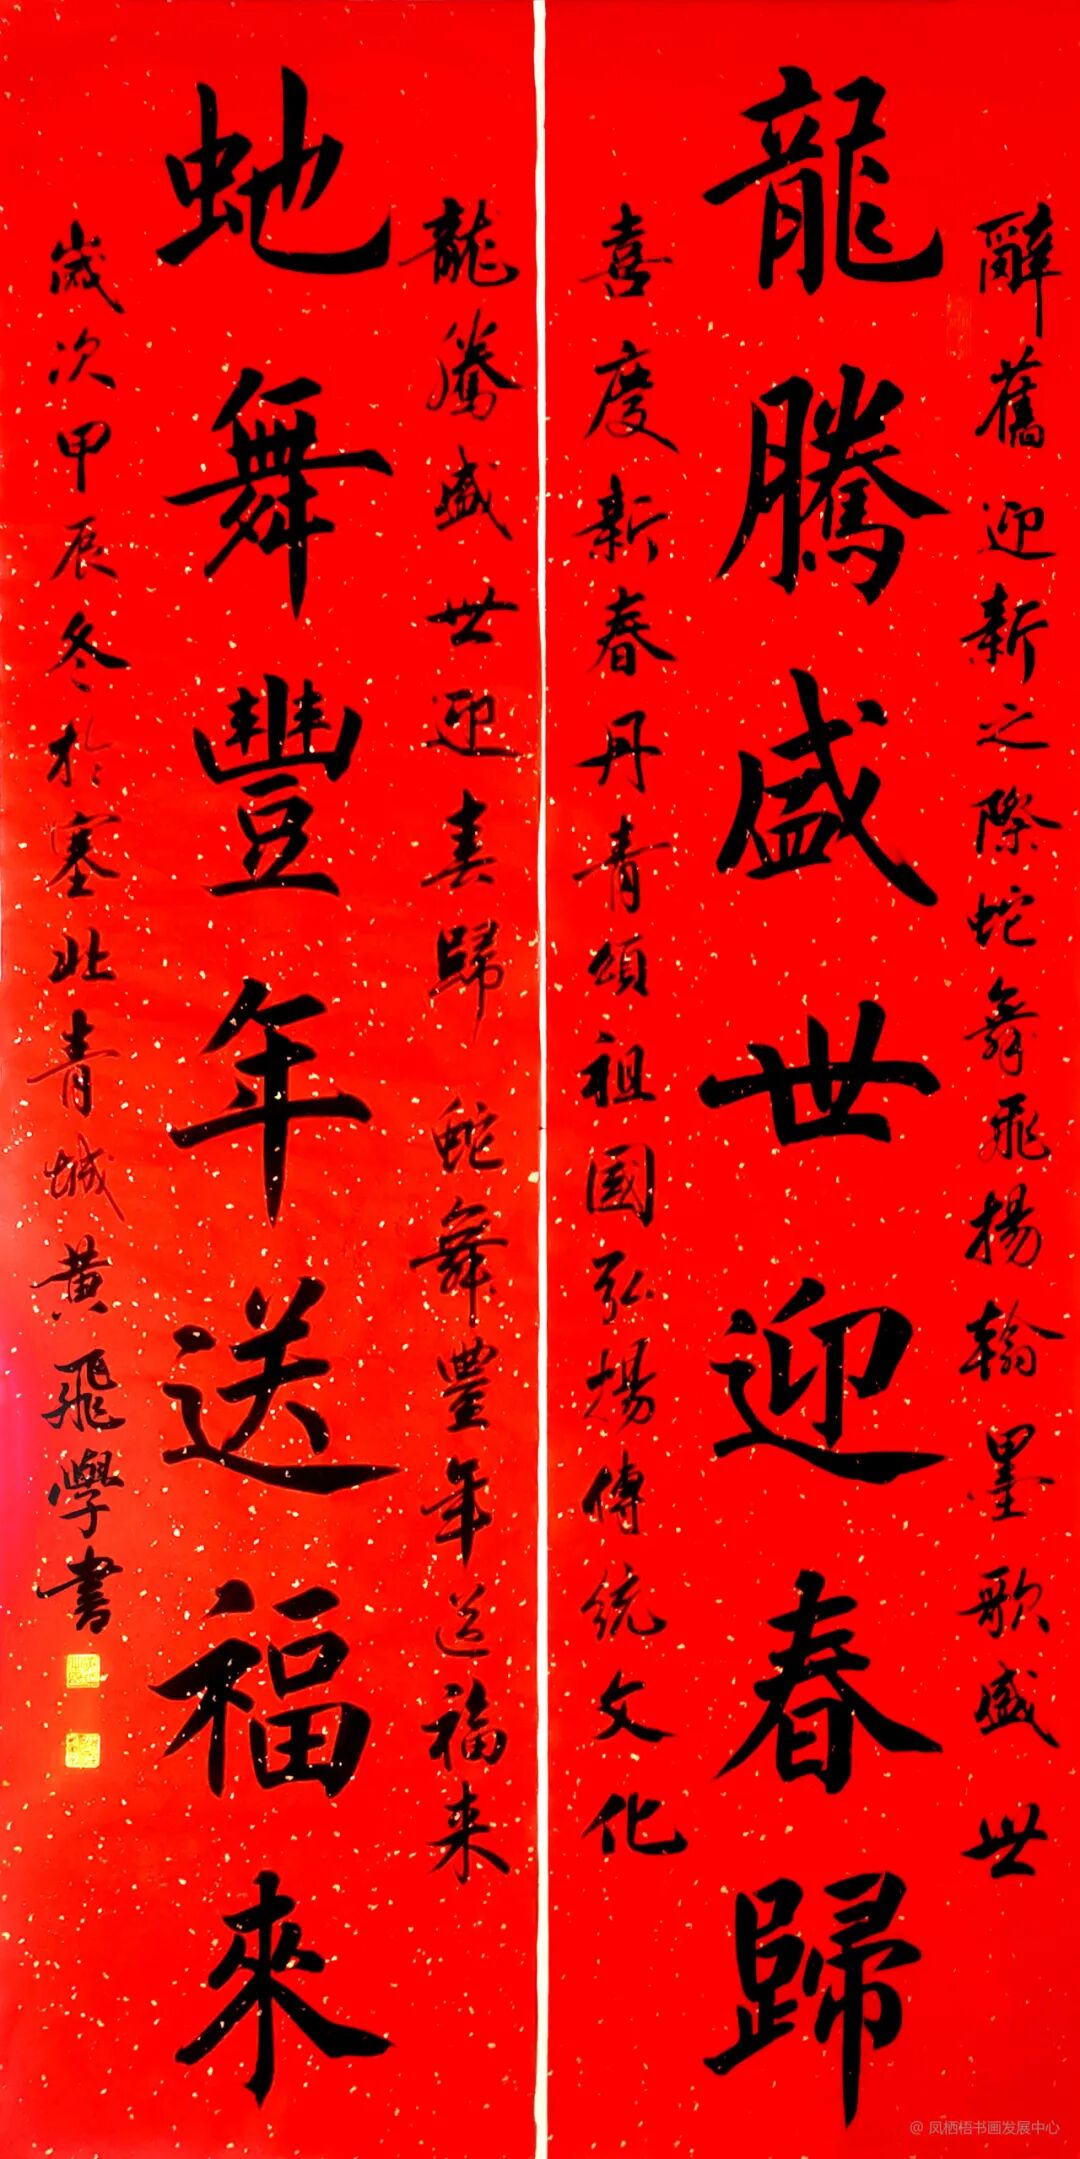 辭舊迎新之際蛇舞飛揚翰墨歌盛世
龍騰盛世迎春歸
喜度新春丹青頌祖國弘揚傳統文化
龍騰盛世迎春歸 蛇舞豐年送福来
虵舞豐年送福來
歲次甲辰冬於塞北青城黄飛學書
@ 凤栖梧书画发展中心